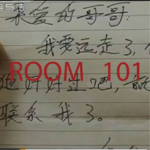 亲爱的哥哥:
我要远走了,
ROOM 101
吧好好过吧,
联系我了。